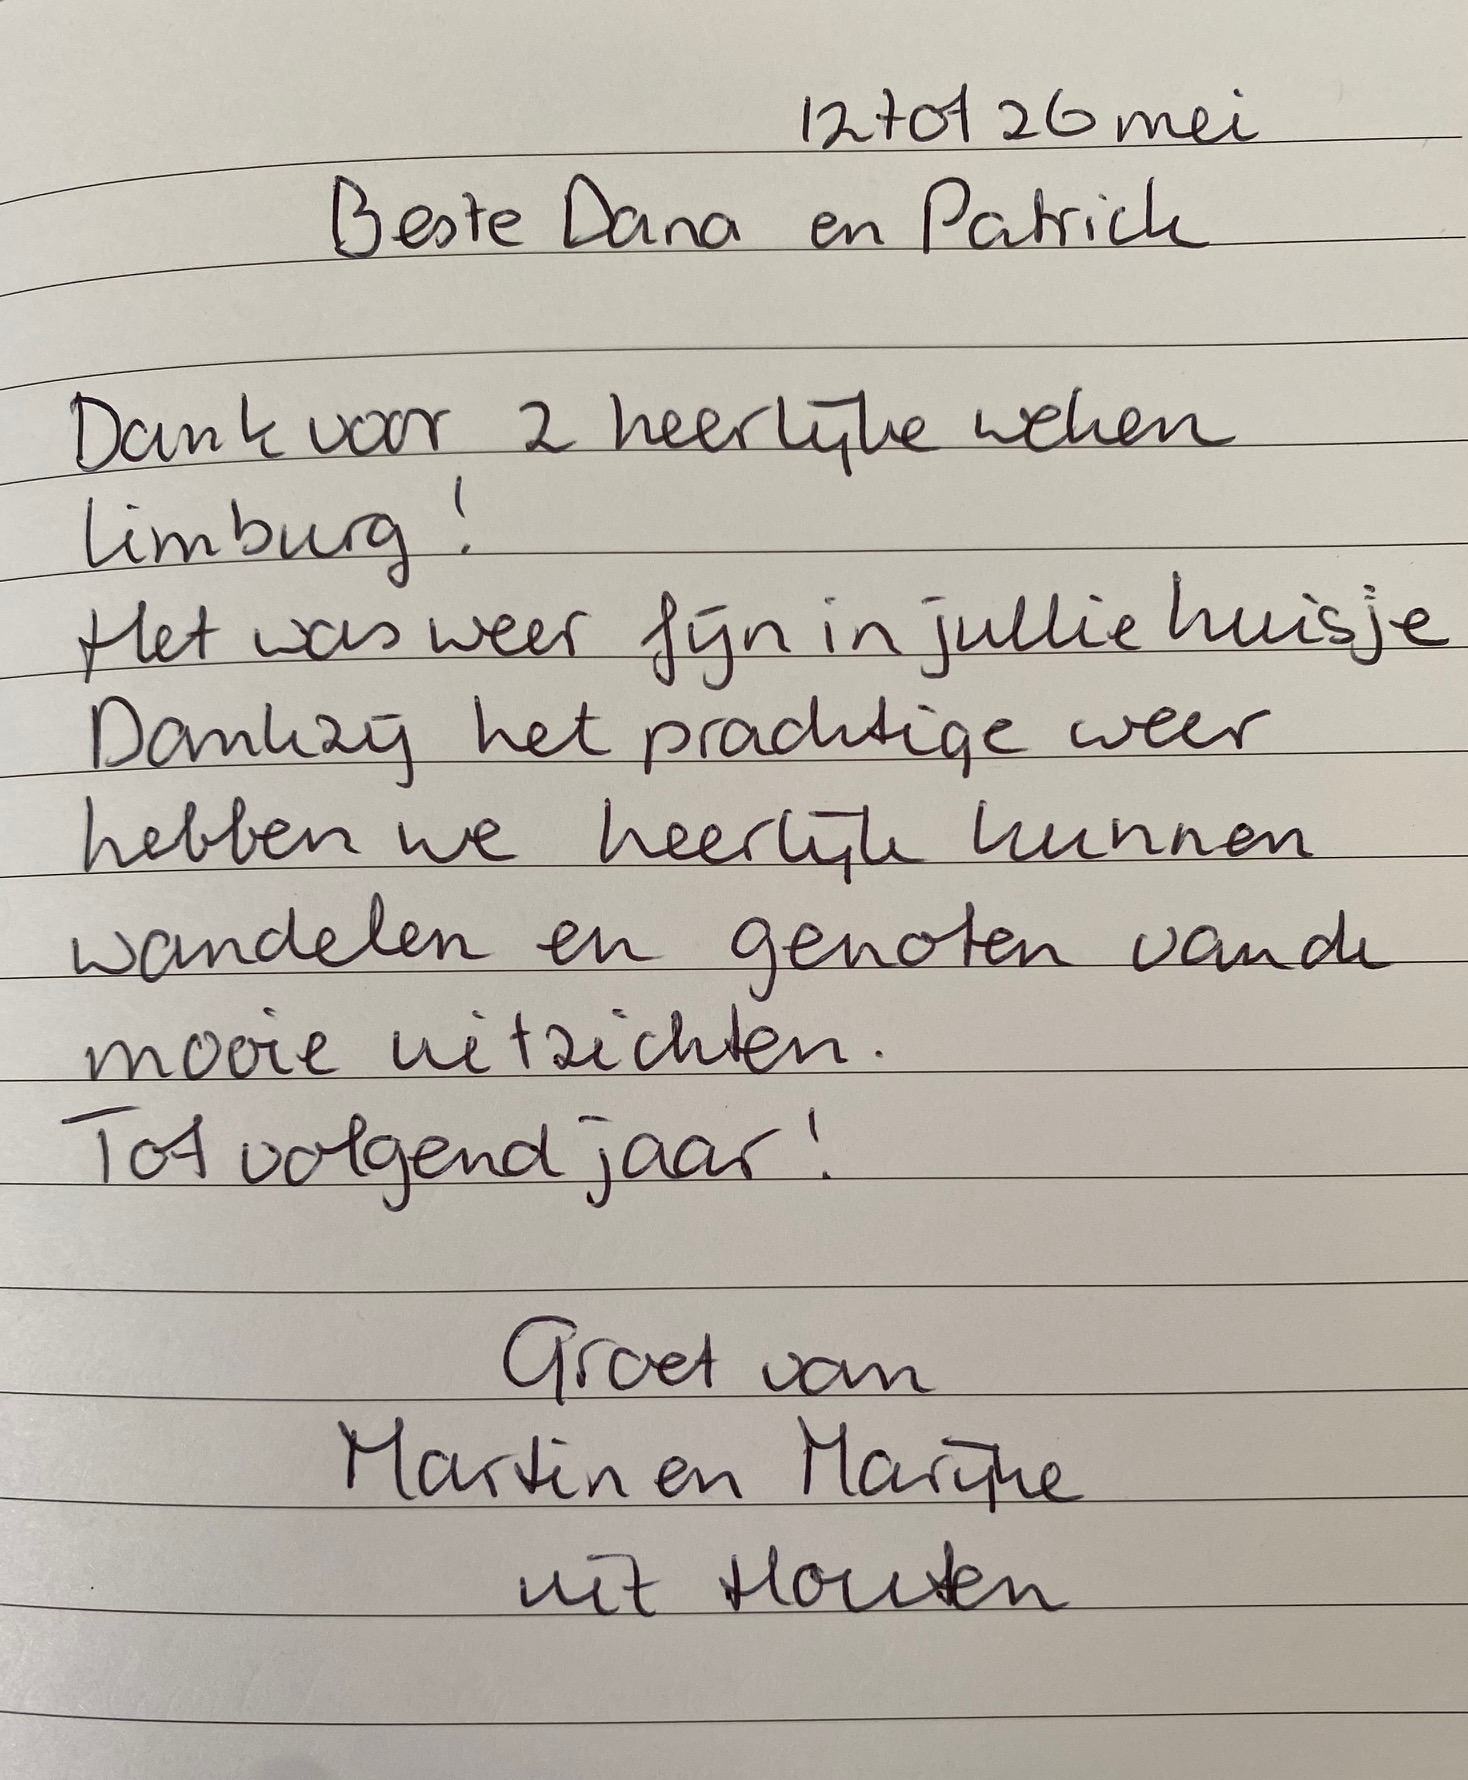 12 tot 26 mei
Beste Dana en Patrick
Dank voor 2 heerlijke weken
Limburg!
Het was weer fijn in jullie huisje
Dankzij het prachtige weer
hebben we heerlijk kunnen
wandelen en genoten van de
mooie uitzichten.
Tot volgend jaar!
Groet van
Martin en Marijke
uit Houten